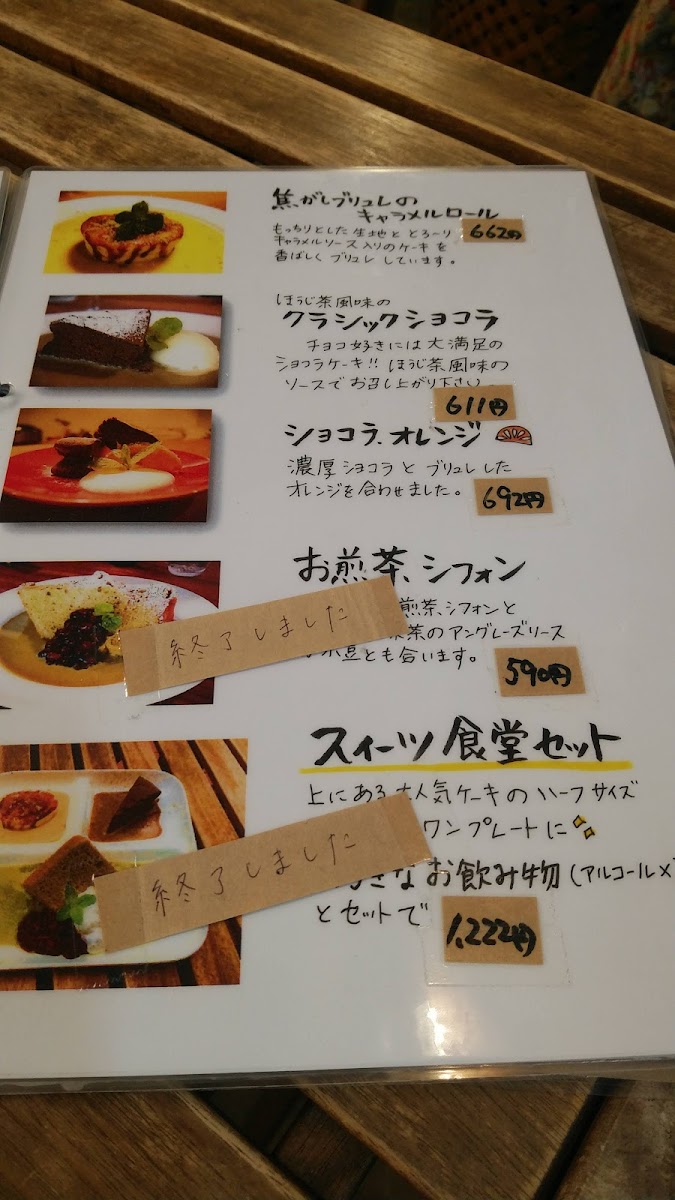 焦がしブリュレの
キャラメルロール
もっちりとした生地ととろ〜り
キャラメルソース入りのケーキを
香ばしくブリュレしています。
662円
ほうじ茶風味の
クラシックショコラ
チョコ好きには大満足の
ショコラケーキ!!ほうじ茶風味の
ソースでお召し上がり下さい。
611円
ショコラ、オレンジ
濃厚ショコラとブリュレした
オレンジを合わせました。
692円
お煎茶、シフォン
煎茶、シフォンと
茶のアングレーズソース
小豆とも合います。
終了しました
590円
スィーツ食堂セット
上にある大人気ケーキのハーフサイズ
ワンプレートに
終了しました
きなお飲み物(アルコール×
とセットで
1,222円